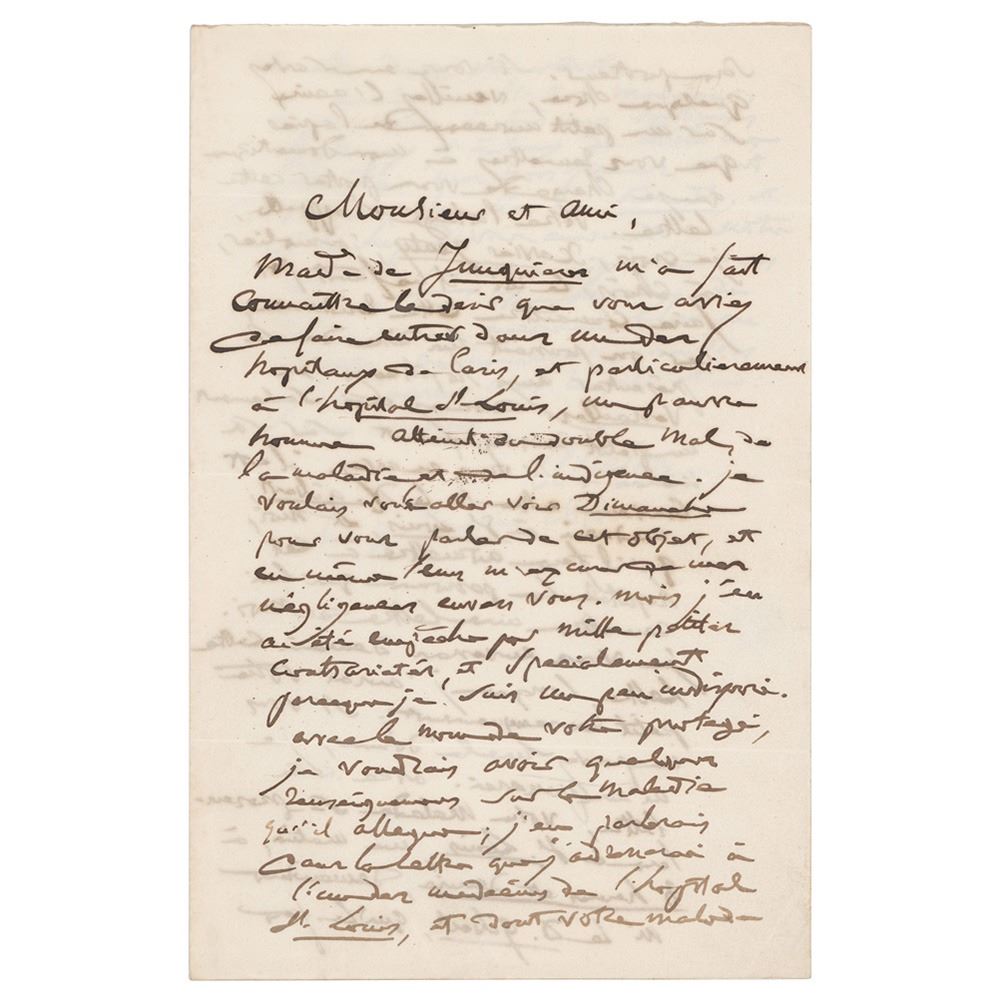 Monsieur et ami,
Made de Junquieres m'a fait
connaitre le desir que vous aviez
de faire entrer dans un des
hopitaux de Paris, et particulierement
à l'hopital St Louis, un pauvre
homme atteint du double mal, de
la maladie et de l'indigence. je
voulais vous aller voir Dimanche
pour vous parler de cet objet, et
en même tems m'excuser de mes
négligences envers vous. mais j'en
ai été empêché par mille petites
contrariétés, et specialement
parceque je suis un peu indisposé.
avec le nom de votre protegé,
je voudrais avoir quelques
renseignemens sur la maladie
qu'il allegue; j'en parlerais
dans la lettre que j'adresserai à
l'un des medecins de l'hopital
St Louis, et dont votre malade